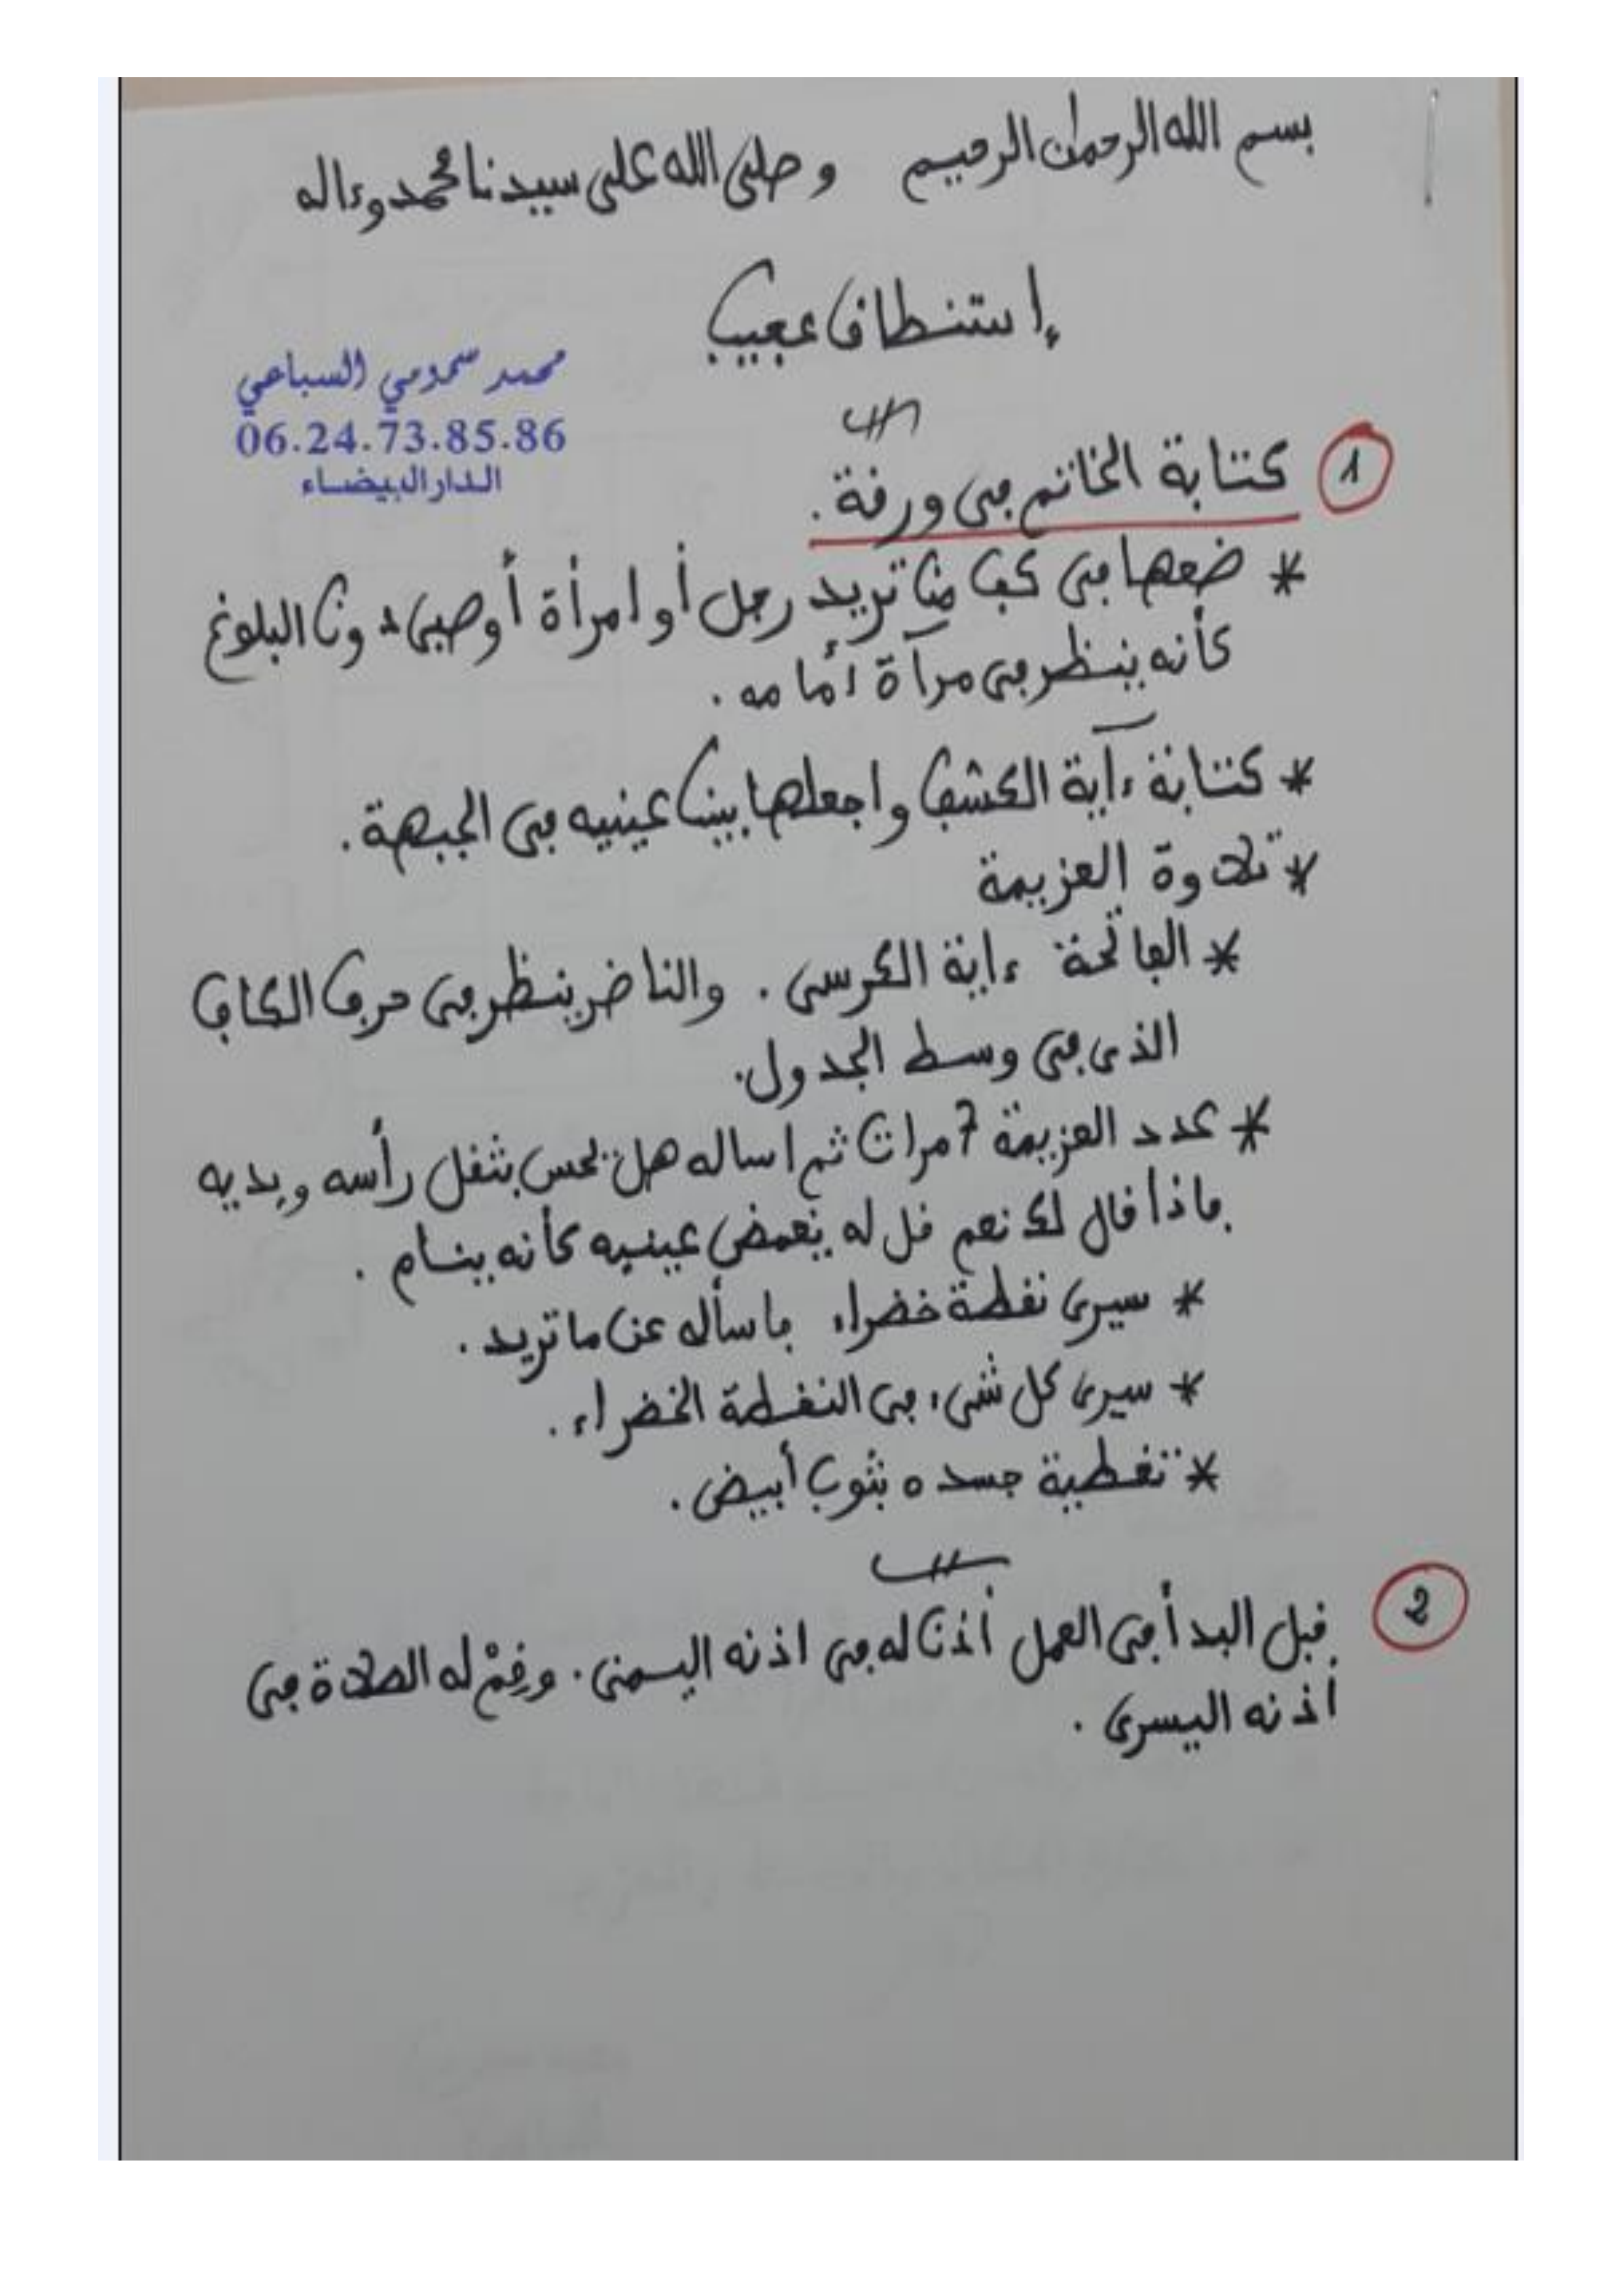 بسم الله الرحمان الرحيم وصلى الله على سيدنا محمد وءاله
إستنطاق عجيب
محمد سمومي السباعي
06.24.73.85.86
الدار البيضاء
1 كتابة الخاتم في ورقة.
* ضعها في كف من تريد رجل أو امرأة أو صبي دون البلوغ
كأنه ينظر في مرآة أمامه.
* كتابة ءاية الكشف واجعلها بين عينيه في الجبهة.
* تلاوة العزيمة
* الفاتحة ءاية الكرسي. والناضر ينظر في حرف الكاف
الذي في وسط الجدول.
* عدد العزيمة 7 مرات ثم اساله هل يحس بثقل رأسه ويديه
فاذا قال لك نعم قل له يغمض عينيه كأنه ينام.
* سيرى نقطة خضراء فاسأله عن ما تريد.
* سيرى كل شيء في النقطة الخضراء.
* تغطية جسده بثوب أبيض.
2 قبل البدأ في العمل أذن له في اذنه اليمنى. وقم له الصلاة في
أذنه اليسرى.